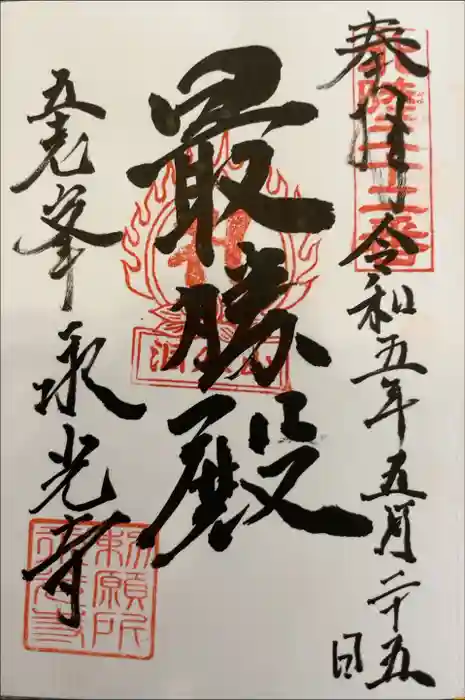 奉拝
令和五年五月二十五日
最勝殿
五老峯
永光寺
勅願所